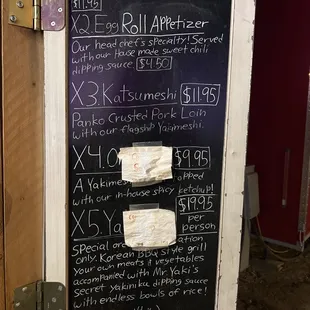 $11.95
X2. Egg Roll Appetizer
Our head chef's specialty! Served
with our house made sweet chili
dipping sauce $4.50
X3. Katsumeshi $11.95
Panko Crusted Pork Loin
with our flagship Yakimeshi.
X4. $9.95
A Yakime opped
with our in-house spicy ketchup!
X5. Ya $19.95
per
person
special or ation
only. Korean BBQ style grill
your own meats & vegetables
accompanied with Mr. Yaki's
secret yakiniku dipping sauce
with endless bowls of rice!